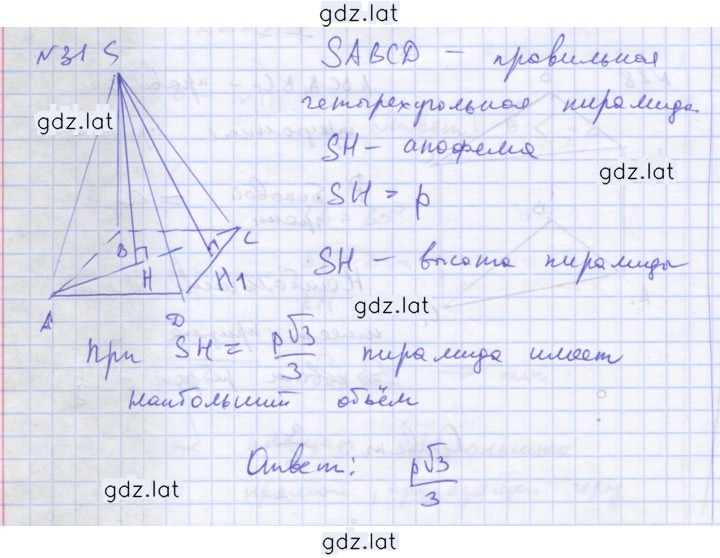 gdz.lat
№31 S
SABCD – правильная
четырехугольная пирамида.
gdz.lat
SH – апофема
gdz.lat
SH = p
B C
SH – высота пирамиды
H H1
gdz.lat
A D
При SH = p√3/3 пирамида имеет
наибольший объём
Ответ: p√3/3
gdz.lat
gdz.lat